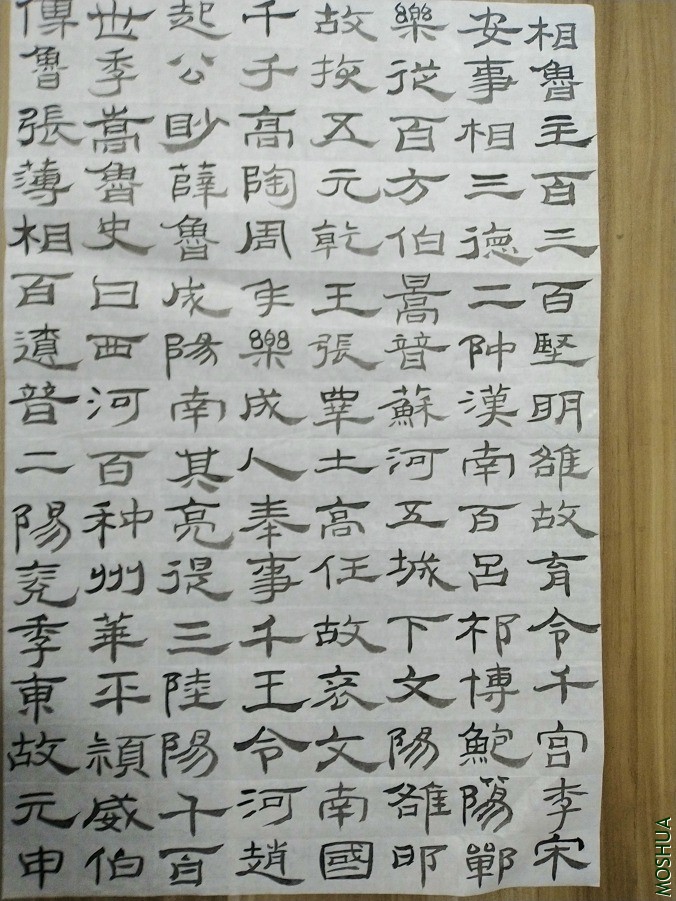 相魯主百三百堅明雒故育令千宫李宋
安事相三德二仲漢南百吕祁博鮑蕩鄲
樂從百方伯暠普蘇河五城下文陽雒邯
故掾五元乾王張畢土高任故衮文南國
千于高陶周年樂成人奉事千王令河趙
起公眇薛魯成陽南其亮提三陸陽千百
世季嵩魯史曰西河百种州華平潁威伯
傳魯張薄相百遺普二陽兖季東故元申
MOSHUA